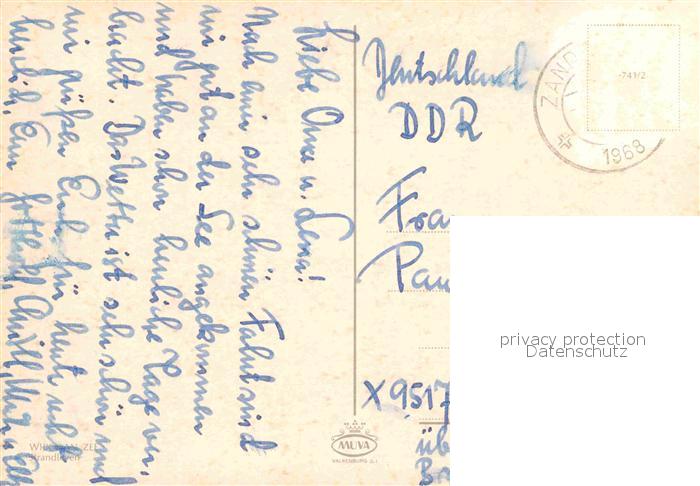 Liebe Oma u. Lena!
Nach einer sehr schönen Fahrt sind
wir gut an der See angekommen
und haben schon herrliche Tage ver-
bracht. Das Wetter ist sehr schön und
wir grüßen Euch für heute recht
herzlich, Eure
Deutschland
DDR
Fra
Pau
X 9517
üb
Br
ZAND
1968
-741/2
privacy protection
Datenschutz
MUVA
VALKENBURG
AAN ZEE
Strandleven